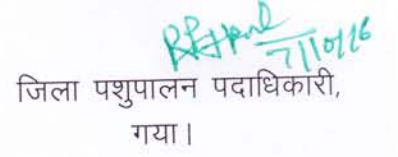 7/10/16
जिला पशुपालन पदाधिकारी,
गया।